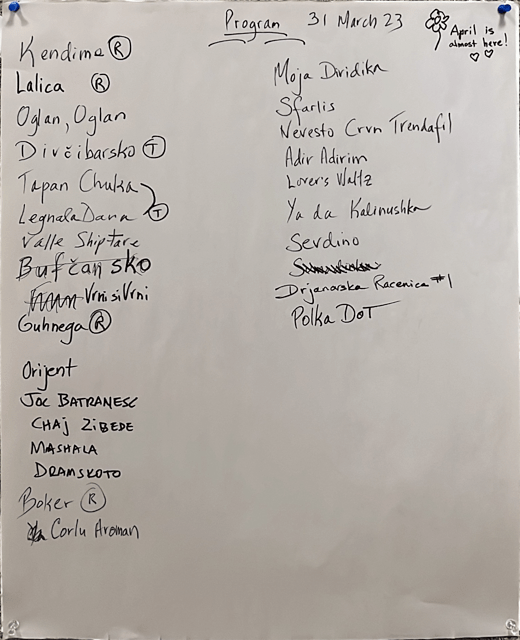 Program 31 March 23
April is
almost here!
Kendime R
Lalica R
Oglan, Oglan
Divčibarsko T
Tapan Chuka
Legnala Dana T
Valle Shiptare
Bufčansko
Vrni si Vrni
Guhnega R
Orijent
JOC BATRANESC
CHAJ ZIBEDE
MASHALA
DRAMSKOTO
Boker R
Corlu Aroman
Moja Diridika
Sfarlis
Nevesto Crvn Trendafil
Adir Adirim
Lover's Waltz
Ya da Kalinushka
Sevdino
Drjanovska Racenica #1
Polka DoT